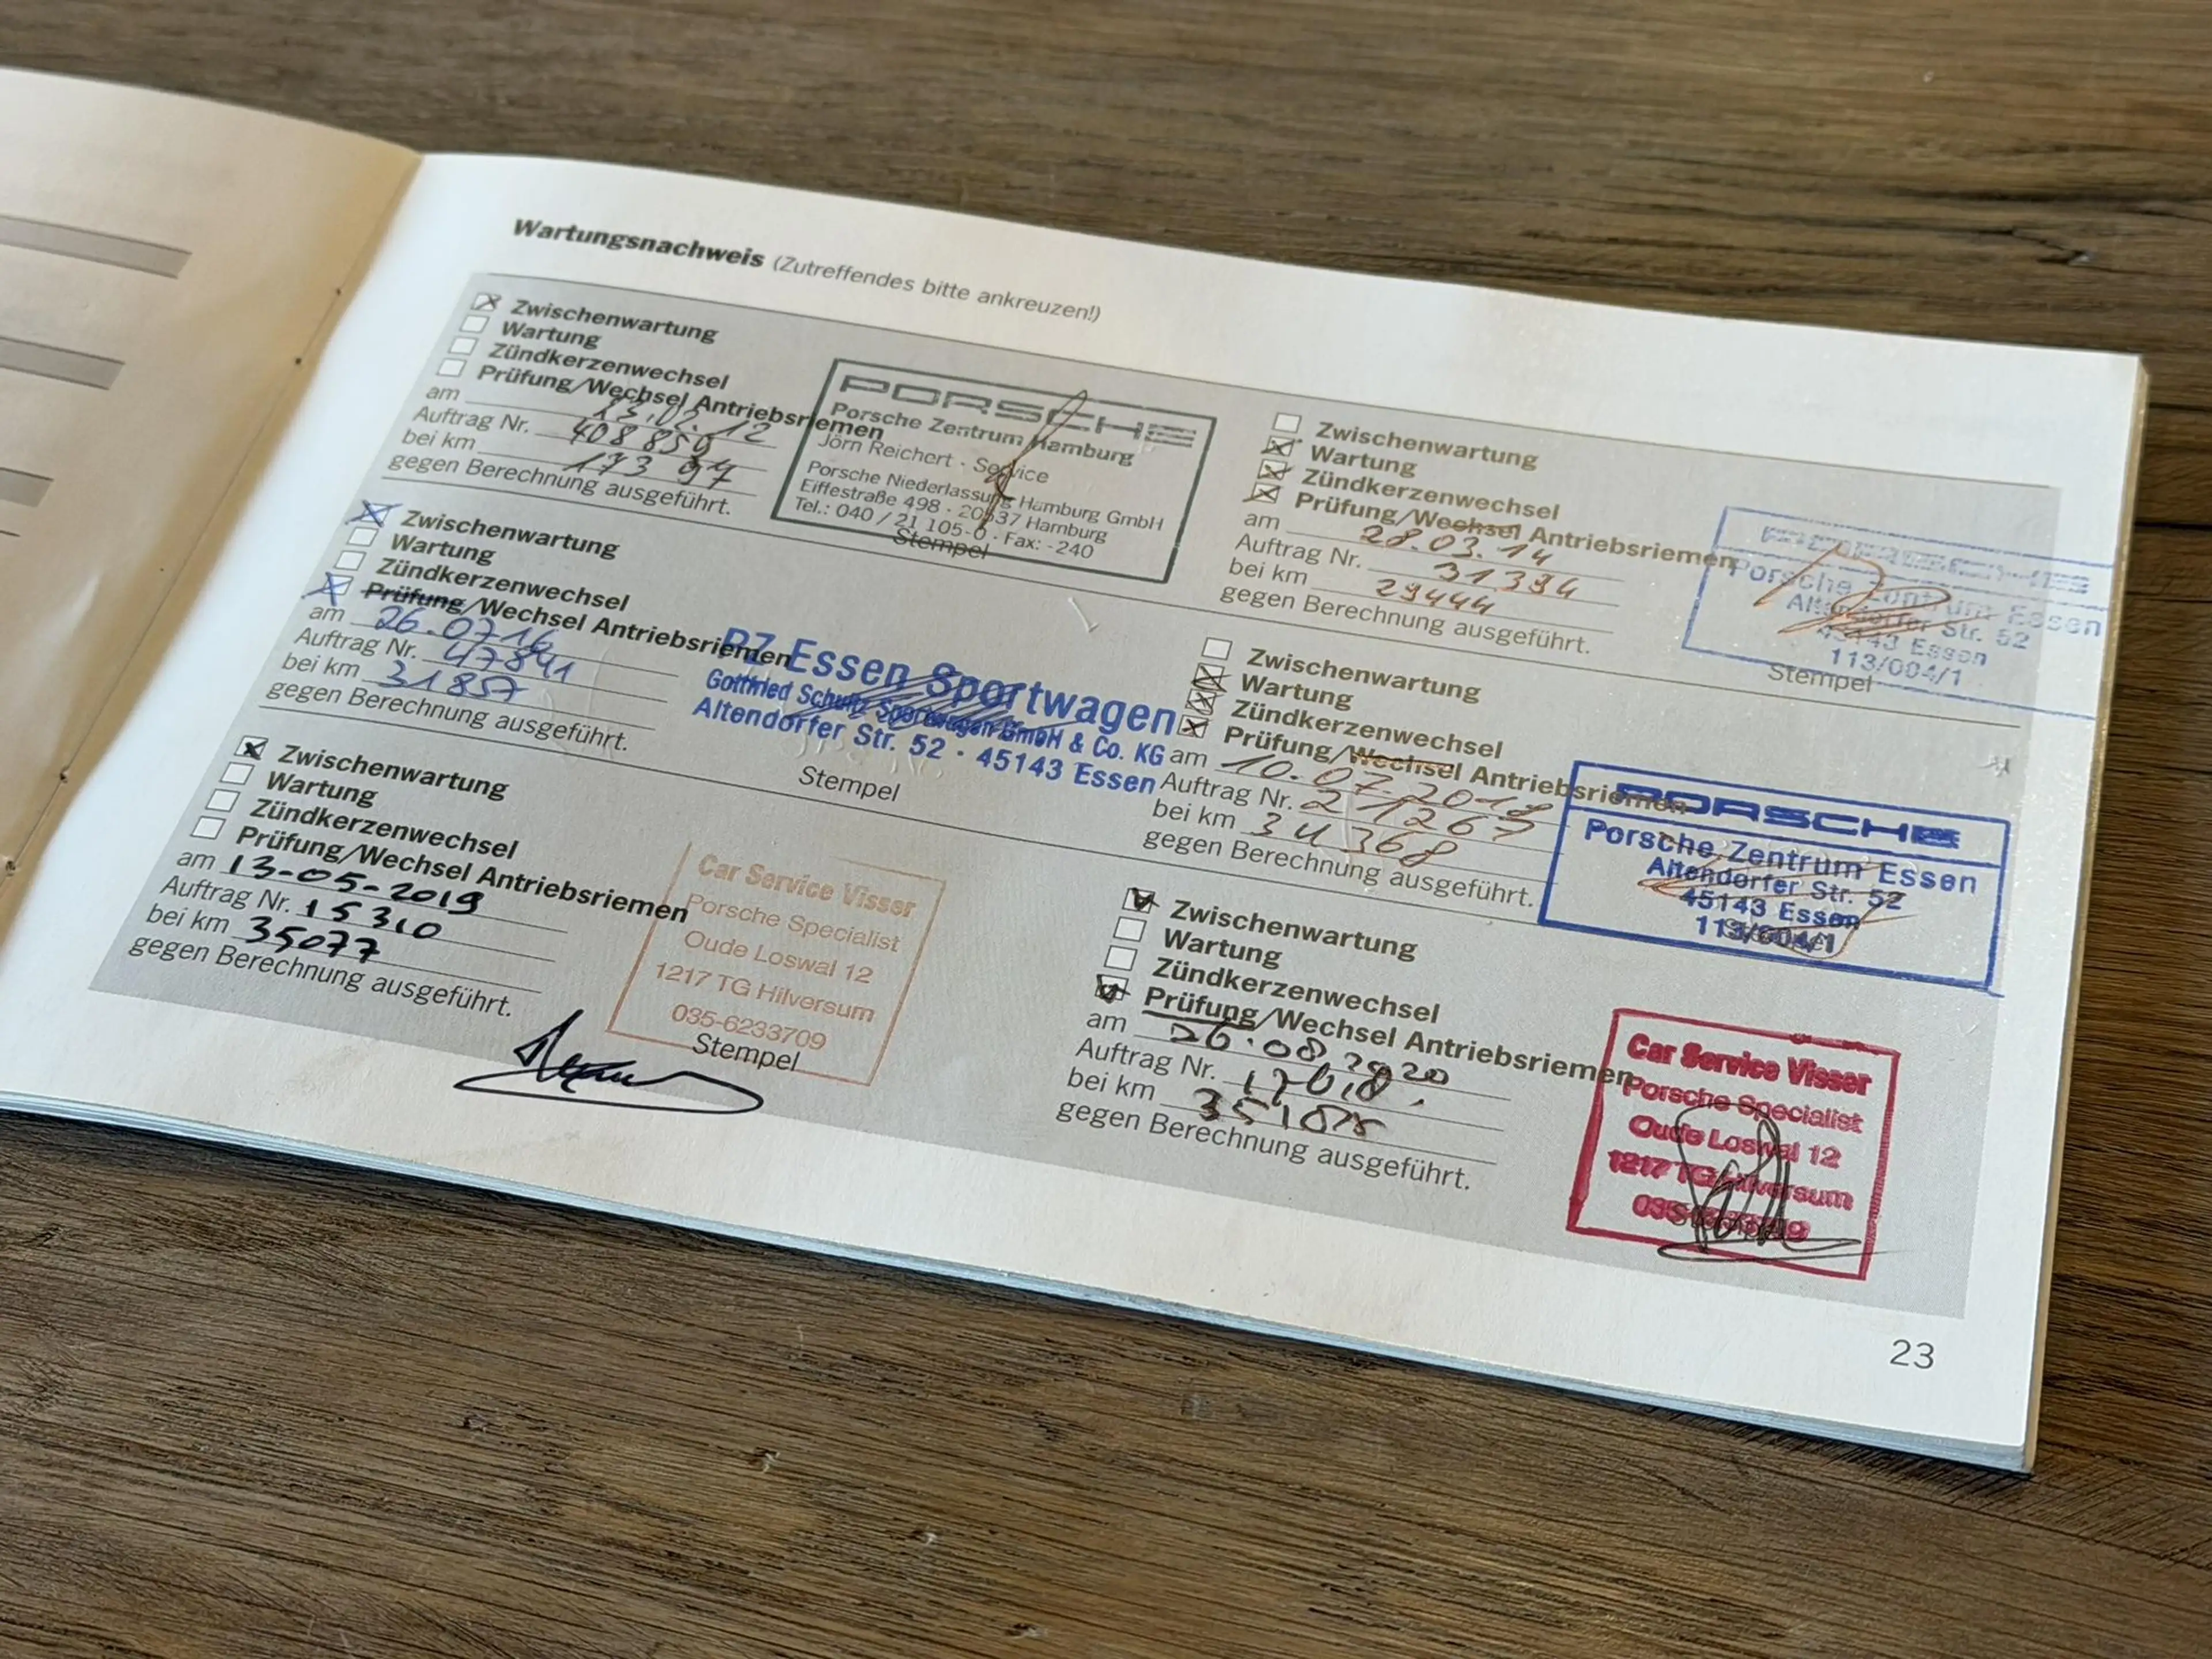 Wartungsnachweis (Zutreffendes bitte ankreuzen!)
Zwischenwartung
Wartung
Zündkerzenwechsel
Prüfung/Wechsel Antriebsriemen
am 13.02.12
Auftrag Nr. 408850
bei km
gegen Berechnung ausgeführt.
PORSCHE
Porsche Zentrum Hamburg
Jörn Reichert · Service
Porsche Niederlassung Hamburg GmbH
Eiffestraße 498 · 20537 Hamburg
Tel.: 040 / 21 105-0 · Fax: -240
Stempel
Zwischenwartung
Wartung
Zündkerzenwechsel
Prüfung/Wechsel Antriebsriemen
am 28.03.14
Auftrag Nr. 31394
bei km 29444
gegen Berechnung ausgeführt.
PORSCHE
Porsche Zentrum Essen
Altendorfer Str. 52
45143 Essen
113/004/1
Stempel
Zwischenwartung
Wartung
Zündkerzenwechsel
Prüfung/Wechsel Antriebsriemen
am 26.07.16
Auftrag Nr. 47841
bei km 31857
gegen Berechnung ausgeführt.
PZ Essen Sportwagen
Gottfried Schultz Sportwagen GmbH & Co. KG
Altendorfer Str. 52 · 45143 Essen
Stempel
Zwischenwartung
Wartung
Zündkerzenwechsel
Prüfung/Wechsel Antriebsriemen
am 10.07.2018
Auftrag Nr. 21267
bei km 34368
gegen Berechnung ausgeführt.
PORSCHE
Porsche Zentrum Essen
Altendorfer Str. 52
45143 Essen
113/004/1
Zwischenwartung
Wartung
Zündkerzenwechsel
Prüfung/Wechsel Antriebsriemen
am 13-05-2019
Auftrag Nr. 15310
bei km 35077
gegen Berechnung ausgeführt.
Car Service Visser
Porsche Specialist
Oude Loswal 12
1217 TG Hilversum
035-6233709
Stempel
Zwischenwartung
Wartung
Zündkerzenwechsel
Prüfung/Wechsel Antriebsriemen
am 26.08.2020
Auftrag Nr.
bei km
gegen Berechnung ausgeführt.
Car Service Visser
Porsche Specialist
Oude Loswal 12
1217 TG Hilversum
035-6233709
23